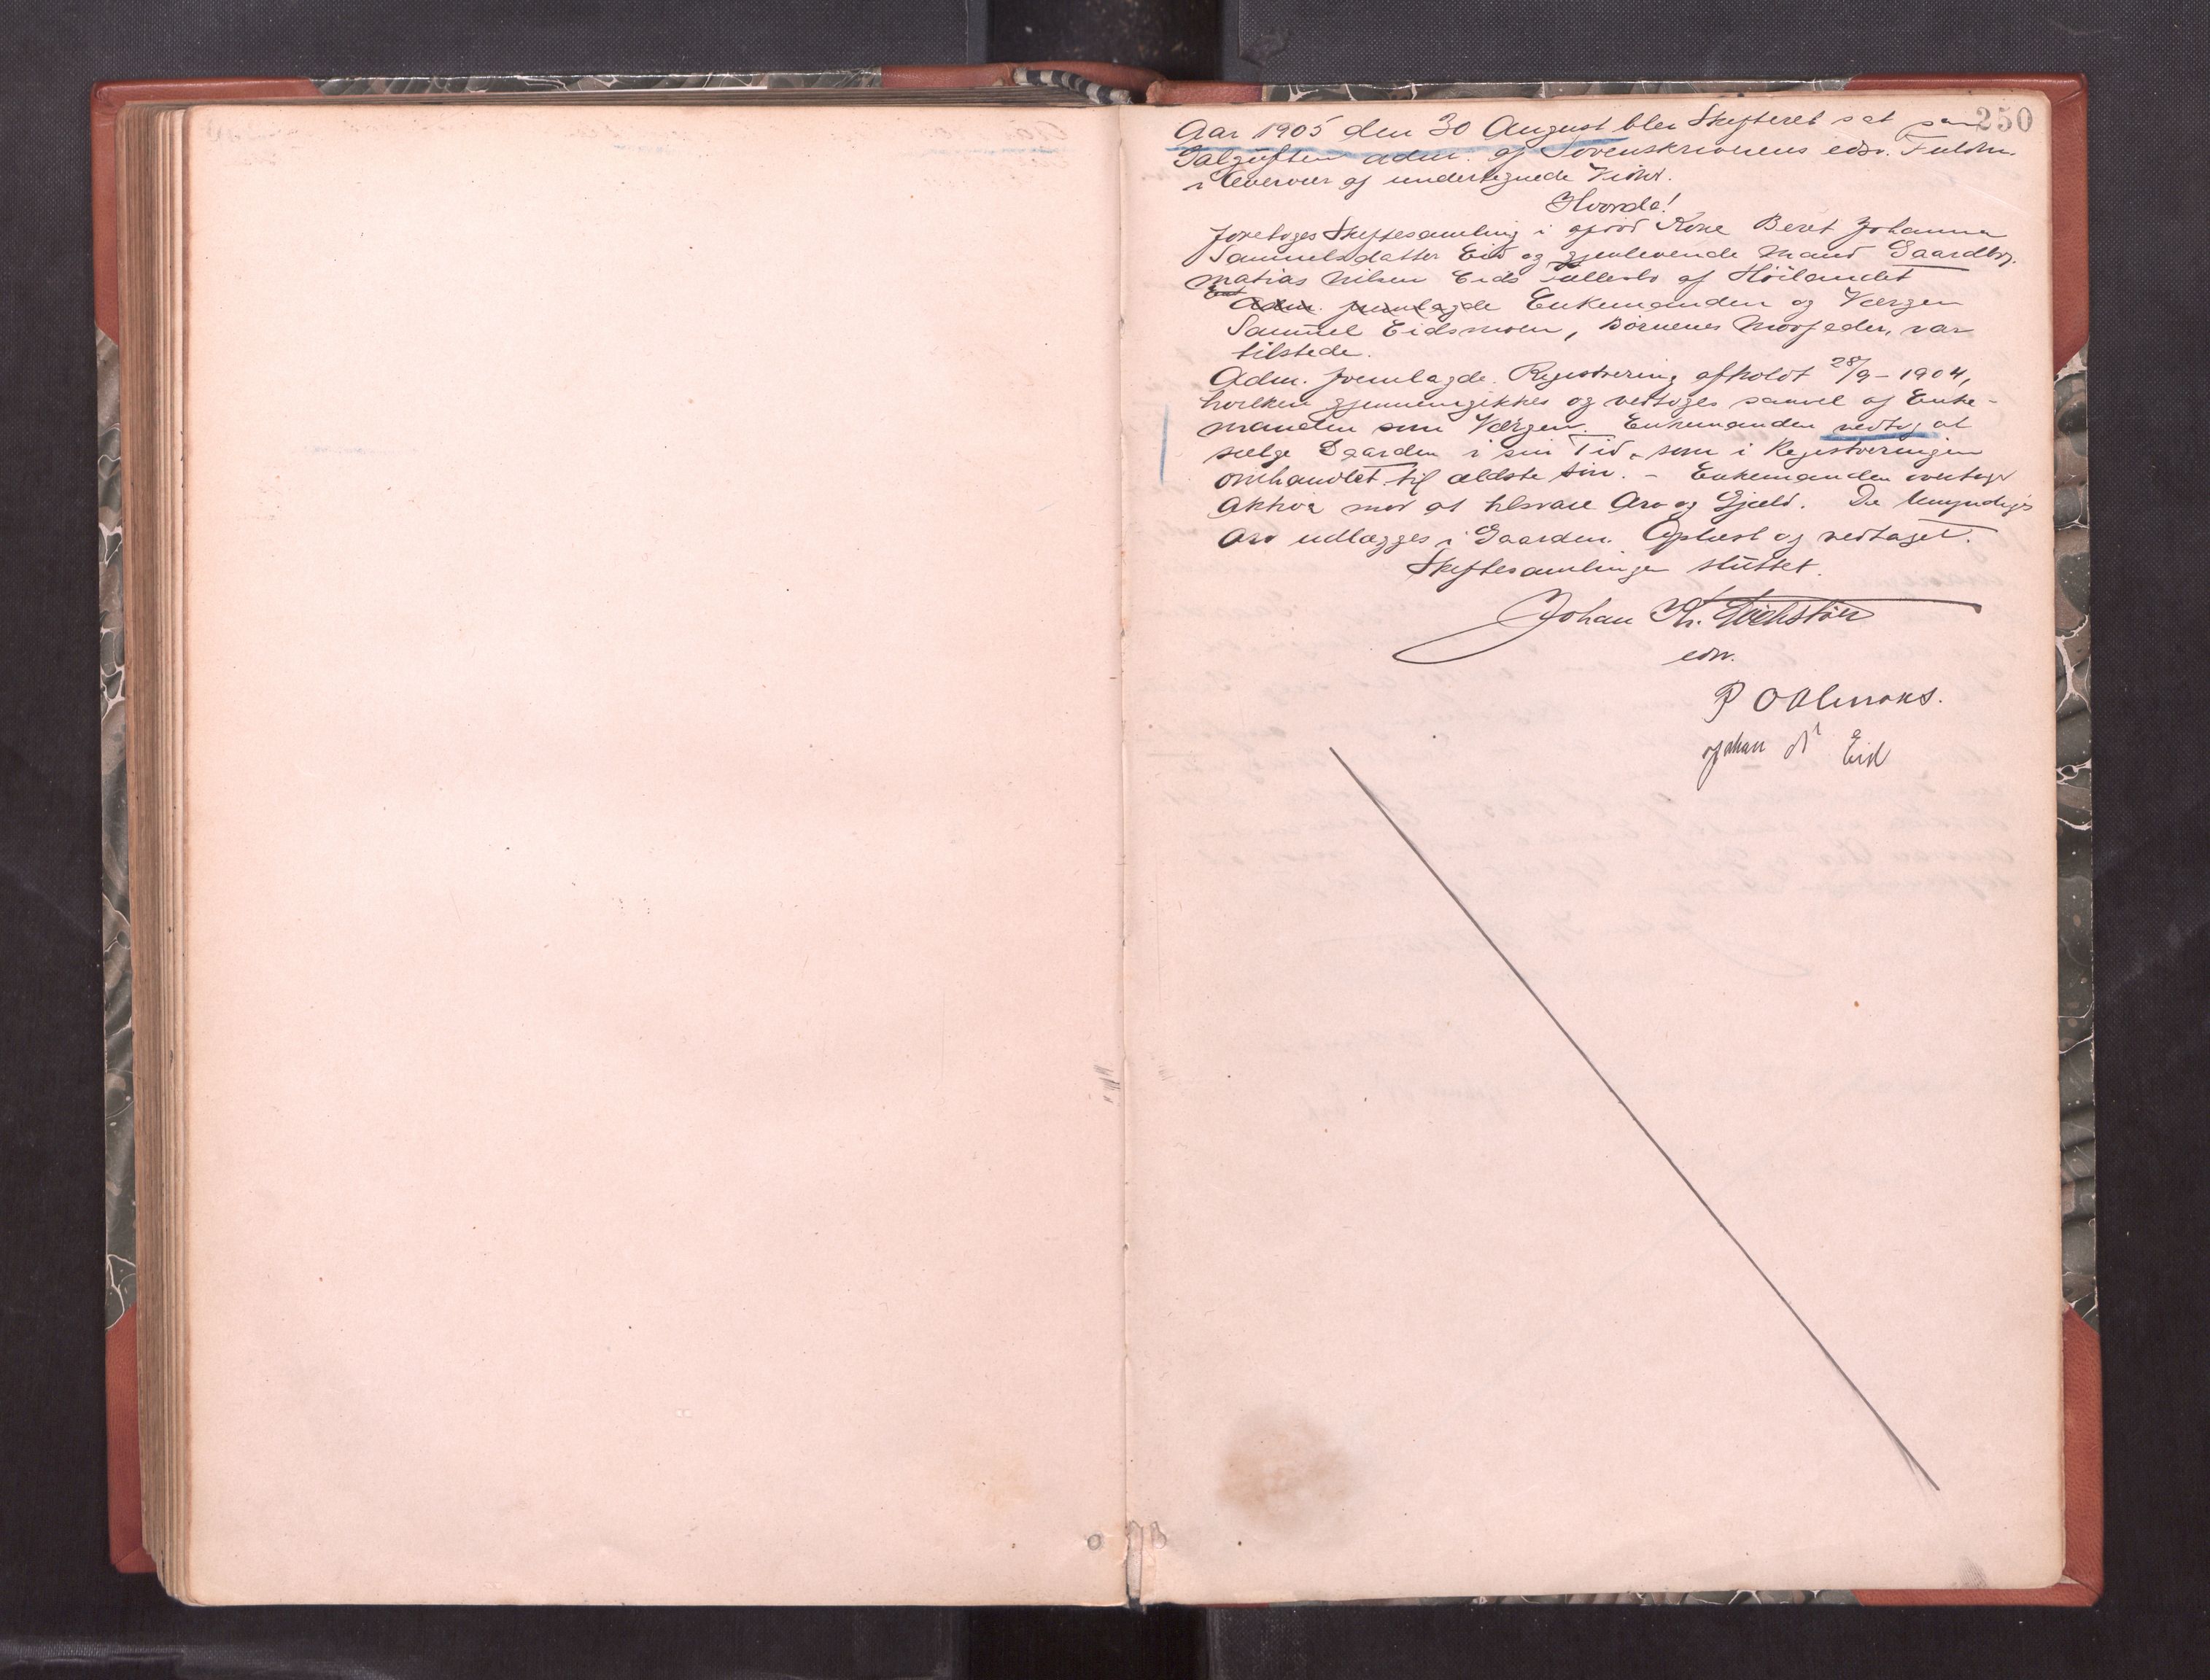 250
Aar 1905 den 30 August blev Skifteret sat paa
Galguften adm. af Sorenskriverens edsv. Fuldm.
i Overvær af undertegnede Vidnr.
Hvorda!
foretoges Skiftesamling i afdød Kone Beret Johanna
Samuelsdatter Eid og gjenlevende Mand Gaardbr.
Matias Nilsen Eids Fællesbo af Høilandet
Adm. fremlagde Enkemanden og Værgen
Samuel Eidsmoen, Børnenes Morfader, var
tilstede.
Adm. fremlagde Registrering afholdt 28/9 - 1904,
hvilken gjennemgikkes og vedtoges saavel af Enke-
manden som Værgen. Enkemanden vedtog at
sælge Gaarden i sin Tid, som i Registreringen
omhandlet til ældste Søn. - Enkemanden overtager
Aktiva mod at tilsvare Arv og Gjæld. De Umyndiges
Arv udlægges i Gaarden. Oplæst og vedtaget.
Skiftesamlingen sluttet.
Johan Kr.
edsv.
P O Almaas.
Johan N Eid